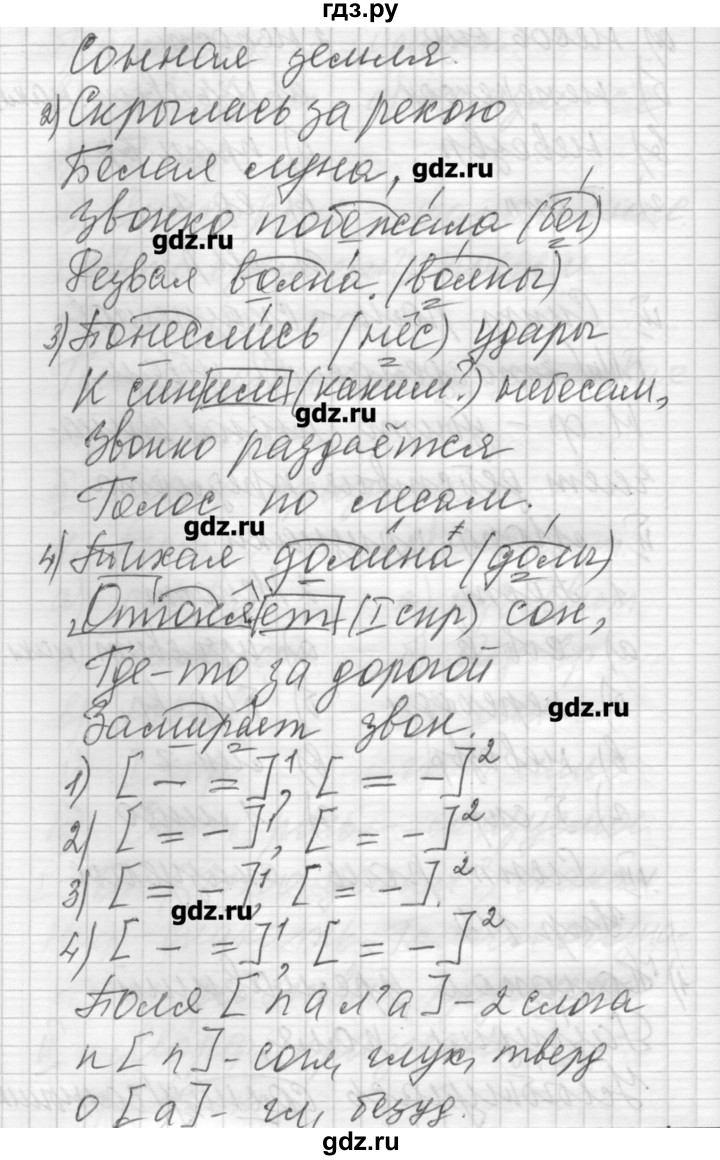 гдз.ру
Сонная земля.
2) Скрылась за рекою
Белая луна,
gdz.ru
Звонко побежала (бег)
gdz.ru
Резвая волна. (волны)
3) Понеслись (нёс) удары
К синим (каким?) небесам,
gdz.ru
Звонко раздаётся
Голос по лесам.
gdz.ru
4) Тихая долина (долы)
Отгоняет (I спр) сон,
Где-то за дорогой
gdz.ru
Замирает звон.
1) [ – = ]¹, [ = – ]²
2) [ = – ]¹, [ = – ]²
3) [ = – ]¹, [ = – ].²
gdz.ru
4) [ – = ]¹, [ = – ]²
Поля [п а л' а] – 2 слога
п [п] – согл, глух, тверд
о [а] – гл, безуд.
gdz.ru